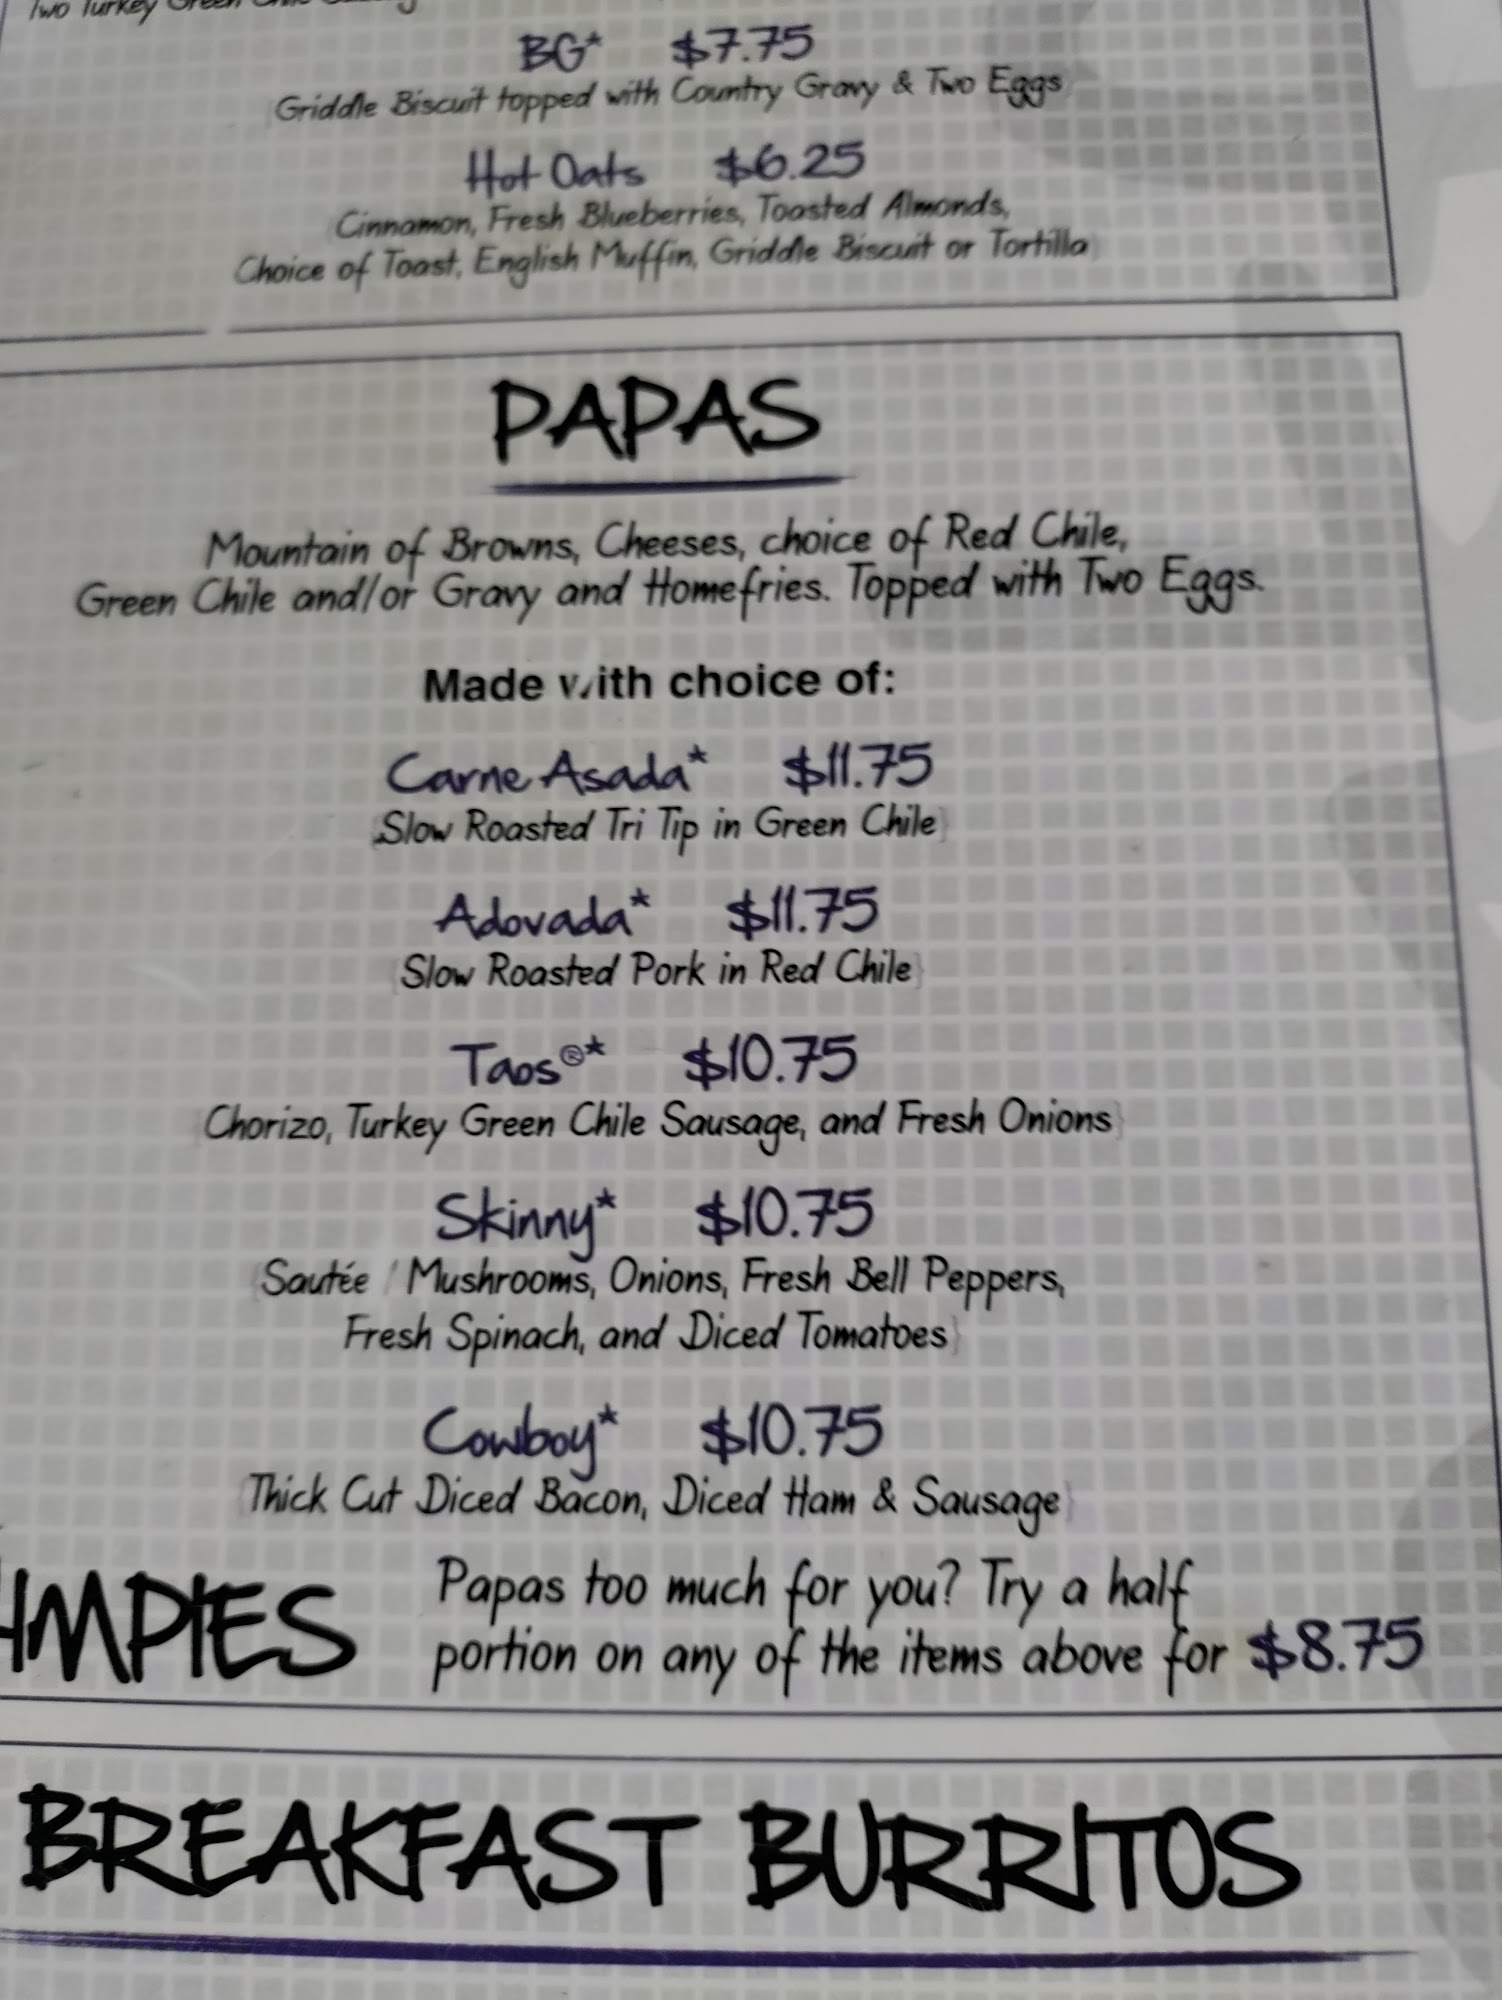 Two Turkey Green Chile
BG* $7.75
Griddle Biscuit topped with Country Gravy & Two Eggs
Hot Oats $6.25
Cinnamon, Fresh Blueberries, Toasted Almonds,
Choice of Toast, English Muffin, Griddle Biscuit or Tortilla
PAPAS
Mountain of Browns, Cheeses, choice of Red Chile,
Green Chile and/or Gravy and Homefries. Topped with Two Eggs.
Made with choice of:
Carne Asada* $11.75
Slow Roasted Tri Tip in Green Chile
Adovada* $11.75
Slow Roasted Pork in Red Chile
Taos®* $10.75
Chorizo, Turkey Green Chile Sausage, and Fresh Onions
Skinny* $10.75
Sautée Mushrooms, Onions, Fresh Bell Peppers,
Fresh Spinach, and Diced Tomatoes
Cowboy* $10.75
Thick Cut Diced Bacon, Diced Ham & Sausage
Papas too much for you? Try a half
IMPIES portion on any of the items above for $8.75
BREAKFAST BURRITOS